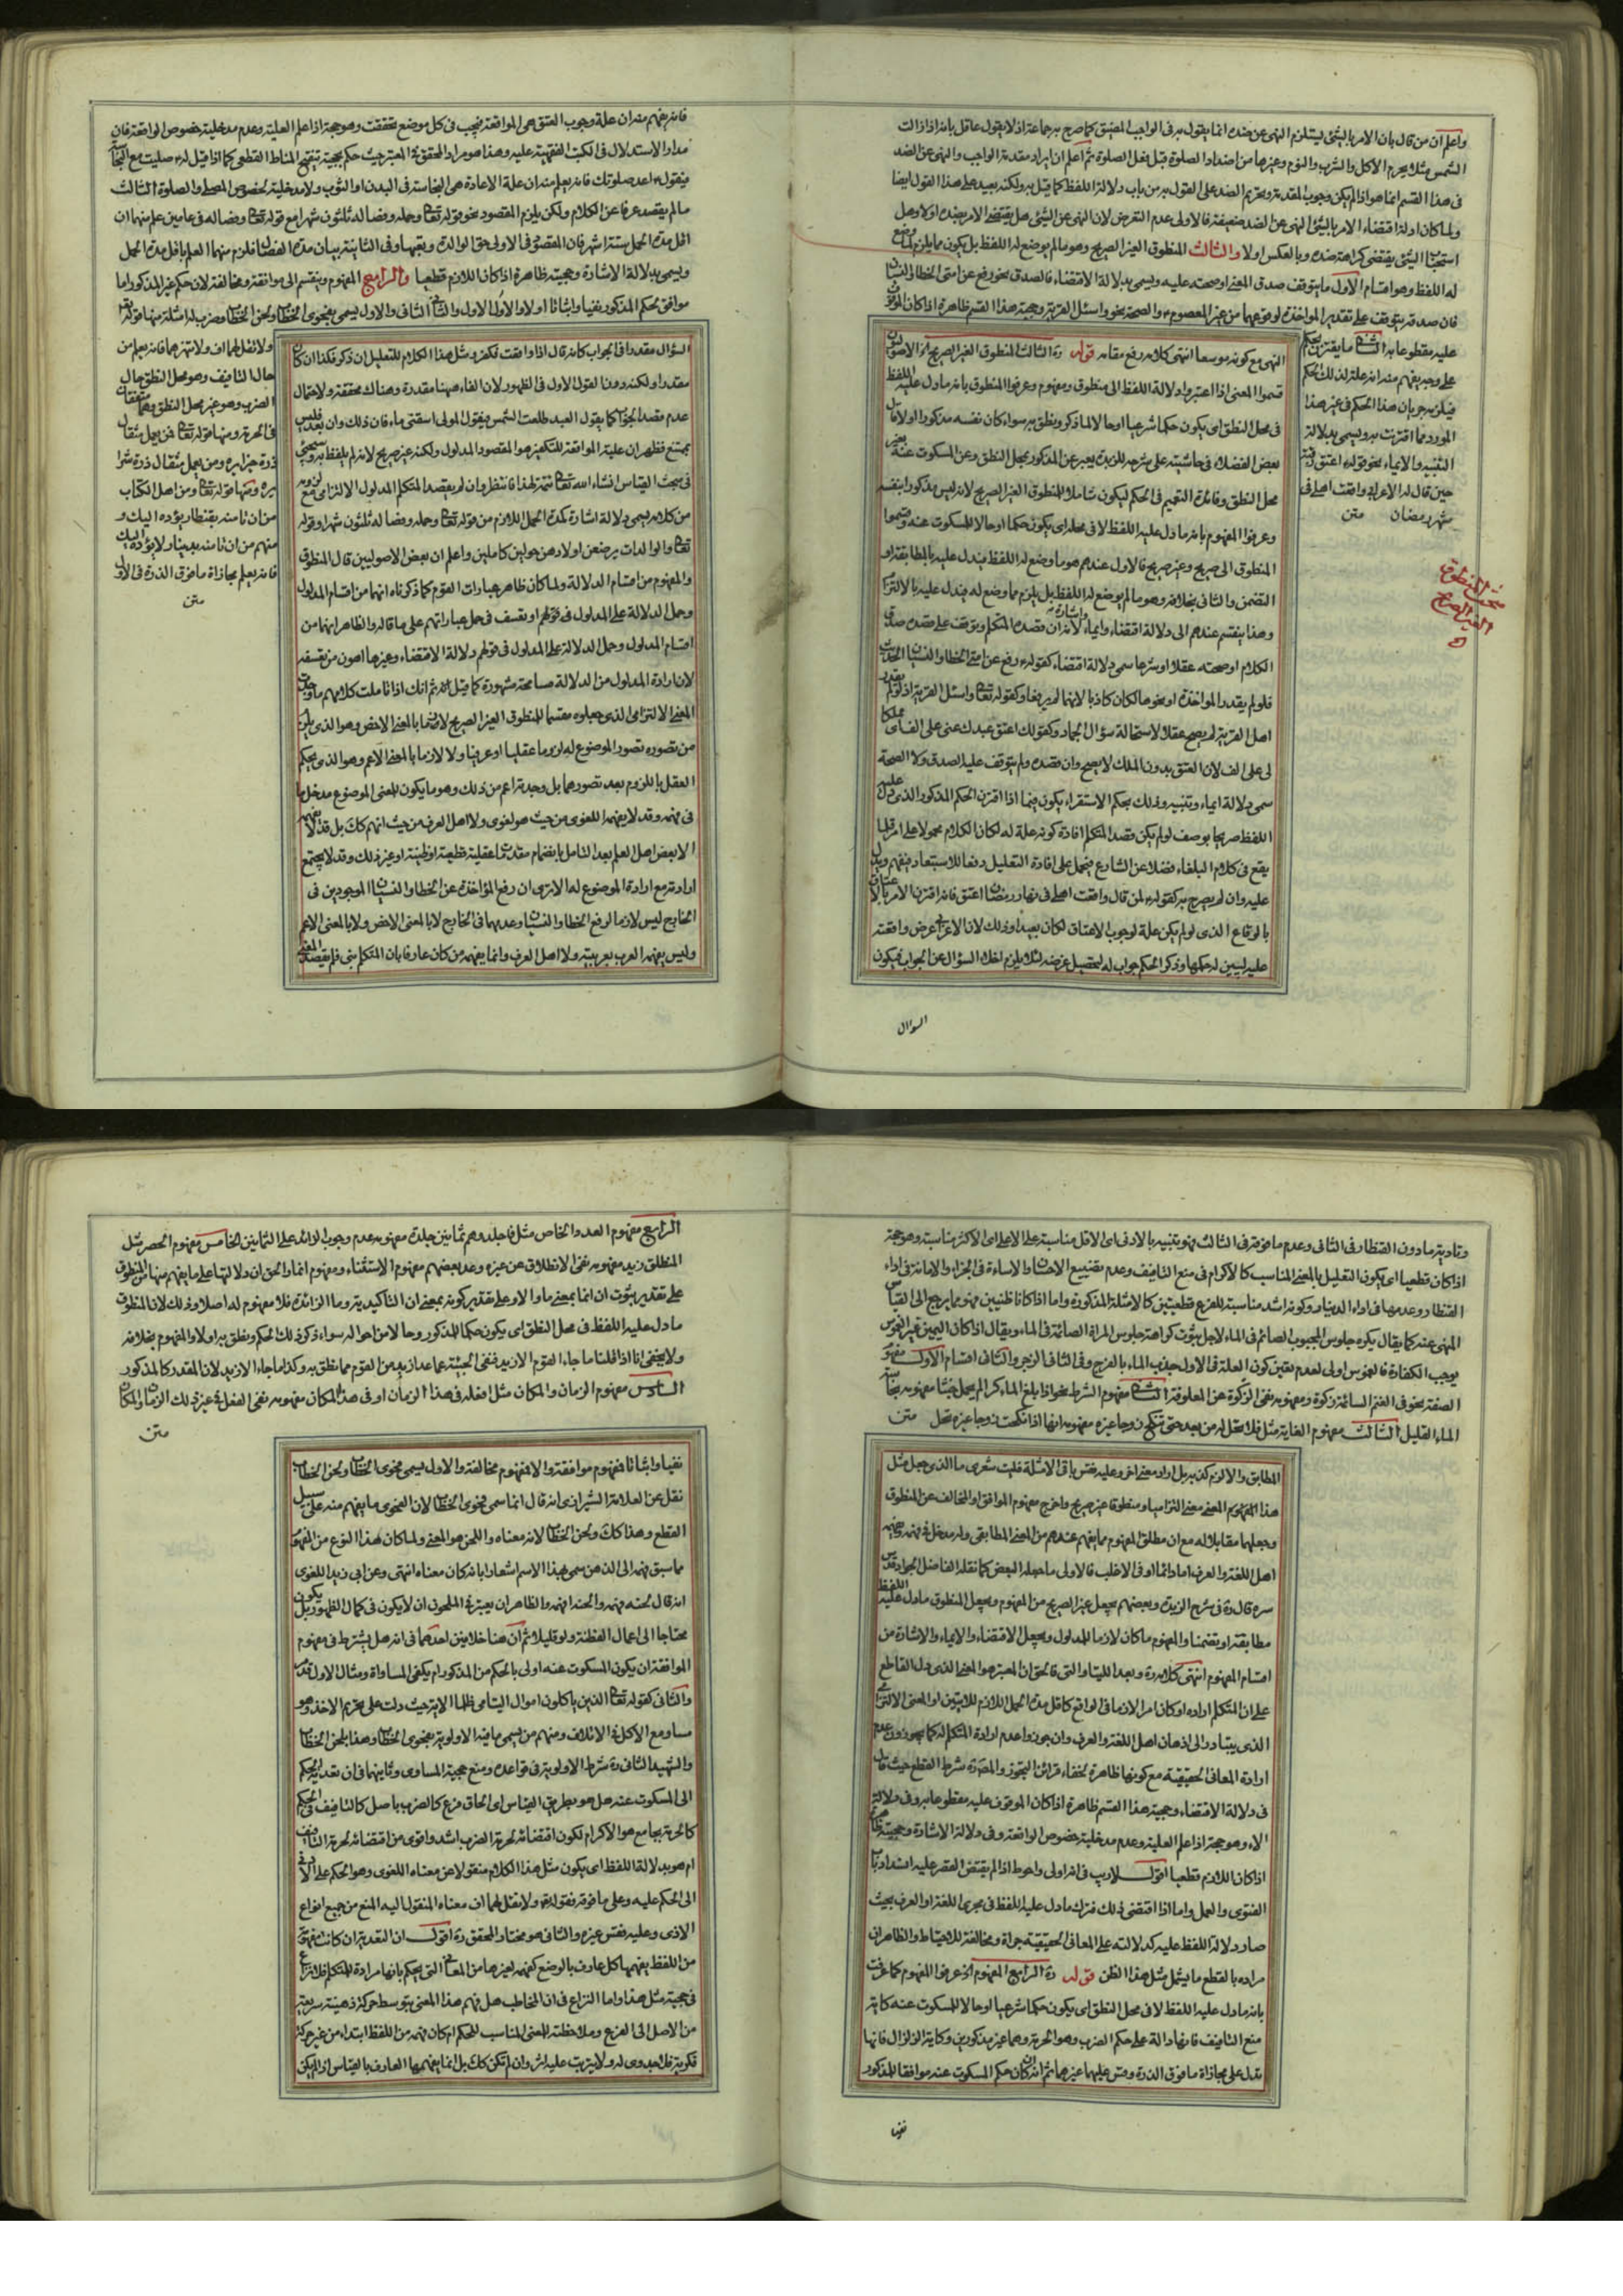 واعلم ان من قال بان الامر بالشئ يستلزم النهى عن ضده انما يقول به فى الواجب المضيق كما صرح به جماعة اذ لا يقول عاقل بانه اذا زالت
الشمس مثلا يحرم الاكل والشرب والنوم وغيرها من اضداد الصلوة قبل فعل الصلوة ثم اعلم ان ايراد مقدمة الواجب والنهى عن الضد
فى هذا القسم انما هو اذا لم يكن وجوب المقدمة وتحريم الضد على القول به من باب دلالة اللفظ كما قيل به ولكنه بعيد على هذا القول ايضا
ولما كان ادلة اقتضاء الامر بالشئ النهى عن الضد ضعيفة فالاولى عدم التعرض لان النهى عن الشئ هل يقتضى الامر بضده اولا وهل
استحباب الشئ يقتضى كراهة ضده وبالعكس اولا والثالث المنطوق الغير الصريح وهو مالم يوضع له اللفظ بل يكون مما يلزم لما وضع
له اللفظ وهو اقسام الاول ما يتوقف صدق المعنى او صحته عليه ويسمى بدلالة الاقتضاء فالصدق نحو رفع عن امتى الخطا والنسيان
فان صدقه يتوقف على تقدير المواخذة لوقوعهما من غير المعصوم والصحة نحو واسئل القرية وحجية هذا القسم ظاهرة اذا كان الموقوف
عليه مقطوعا به الثانى ما يقترن بحكم
على وجه يفهم منه انه علة لذلك الحكم
فيلزمه جريان هذا الحكم فى غير هذا
المورد مما اقترنت به ويسمى بدلالة
التنبيه والايماء نحو قوله اعتق رقبة
حين قال له الاعرابى واقعت اهلى فى
شهر رمضان متن
مبحث المنطوق
الغير الصريح
النهى مع كونه موسعا انتهى كلامه رفع مقامه قوله ره الثالث المنطوق الغير الصريح الخ الاصوليون
قسموا المعنى اذا اعتبروا دلالة اللفظ الى منطوق ومفهوم وعرفوا المنطوق بانه ما دل عليه اللفظ
فى محل النطق اى يكون حكما شرعيا او حالا لما ذكر ونطق به سواء كان نفسه مذكورا اولا قال
بعض الفضلاء فى حاشيته على شرحه للزبدة يعبر عن المذكور بمحل النطق وعن المسكوت عنه بغير
محل النطق وفائدة التعميم فى الحكم ليكون شاملا للمنطوق الغير الصريح لانه ليس مذكورا بنفسه
وعرفوا المفهوم بانه ما دل عليه اللفظ لا فى محله اى يكون حكما او حالا للمسكوت عنه وقسموا
المنطوق الى صريح وغير صريح فالاول عندهم هو ما وضع له اللفظ فيدل عليه بالمطابقة او
التضمن والثانى بخلافه وهو مالم يوضع له اللفظ بل يلزم مما وضع له فيدل عليه بالالتزام
وهذا ينقسم عندهم الى دلالة اقتضاء وايماء واشارة لانه ان قصده المتكلم ويتوقف على قصده صدق
الكلام او صحته عقلا او شرعا سمى دلالة اقتضاء كقوله رفع عن امتى الخطا والنسيان الحديث
فلو لم يقدر المواخذة او نحوها لكان كاذبا لانهما لم يرفعا وكقوله تعالى واسئل القرية اذ لو لم يقدر
اهل القرية لم يصح عقلا لاستحالة سؤال الجماد وكقولك اعتق عبدك عنى على الف اى مملكا
لى على الف لان العتق بدون الملك لا يصح وان قصده ولم يتوقف عليه الصدق ولا الصحة
سمى دلالة ايماء وتنبيه وذلك بحكم الاستقراء يكون فيما اذا اقترن الحكم المذكور الذى دل عليه
اللفظ صريحا بوصف لو لم يكن قصد المتكلم افادة كونه علة له لكان الكلام محمولا على امر قلما
يقع فى كلام البلغاء فضلا عن الشارع فيحمل على افادة التعليل دفعا للاستبعاد فيفهم ويدل
عليه وان لم يصرح به كقوله لمن قال واقعت اهلى فى نهار رمضان اعتق فانه اقترن الامر بالاعتاق
بالوقاع الذى لو لم يكن علة لوجوب الاعتاق لكان بعيدا وذلك لان الاعرابى عرض واقعته
عليه ليبين له حكمها وذكر الحكم جواب له ليحصل غرضه لئلا يلزم اخلاء السؤال عن الجواب فيكون
السؤال
فانه يفهم منه ان علة وجوب العتق هى المواقعة فيجب فى كل موضع تحققت وهو حجة اذا علم العلية وعدم مدخلية خصوص الواقعة فان
مدار الاستدلال فى الكتب الفقهية عليه وهذا هو مراد المحقق فى المعتبر حيث حكم بحجية تنقيح المناط القطعى كما اذا قيل له صليت مع النجاسة
فيقول اعد صلوتك فانه يعلم منه ان علة الاعادة هى النجاسة فى البدن او الثوب ولا مدخلية لخصوص المصلى والصلوة الثالث
مالم يقصد عرفا عن الكلام ولكن يلزم المقصود نحو قوله تعالى وحمله وفصاله ثلثون شهرا مع قوله تعالى وفصاله فى عامين علم منهما ان
اقل مدة الحمل ستة اشهر فان المقصود فى الاولى حق الوالدة وتعبها وفى الثانية بيان مدة الفصال فلزم منهما العلم باقل مدة الحمل
ويسمى بدلالة الاشارة وحجيته ظاهرة اذا كان اللازم قطعيا والرابع المفهوم وينقسم الى موافقة ومخالفة لان حكم غير المذكور اما
موافق لحكم المذكور نفيا واثباتا اولا والاول الاول والثانى الثانى والاول يسمى بفحوى الخطاب ولحن الخطاب وضرب له امثلة منها قوله تعالى
ولا تقل لهما اف ولا تنهرهما فانه يعلم من
حال التافيف وهو محل النطق حال
الضرب وهو غير محل النطق وهما متفقان
فى الحرمة ومنها قوله تعالى فمن يعمل مثقال
ذرة خيرا يره ومن يعمل مثقال ذرة شرا
يره ومنها قوله تعالى ومن اهل الكتاب
من ان تامنه بقنطار يؤده اليك و
منهم من ان تامنه بدينار لا يؤده اليك
فانه يعلم مجازاة ما فوق الذرة فى الاول
متن
السؤال مقدرا فى الجواب كانه قال اذا واقعت فكفر ومثل هذا الكلام للتعليل ان ذكر فكذا ان كان
مقدرا ولكنه دون القول الاول فى الظهور لان الفاء ههنا مقدرة وهناك محققة ولاحتمال
عدم قصد الجواب كما يقول العبد طلعت الشمس فيقول المولى اسقنى ماء فان ذلك وان بعد فليس
بممتنع فظهر ان علية المواقعة للتكفير هو المقصود المدلول ولكنه غير صريح لانه لم يلفظ به وسيجئ
فى مبحث القياس انشاء الله تعالى تتمة لهذا فانتظر وان لم يقصد المتكلم المدلول الالتزامى مع لزومه
من كلامه يسمى دلالة اشارة كمدة الحمل اللازم من قوله تعالى وحمله وفصاله ثلثون شهرا وقوله
تعالى والوالدات يرضعن اولادهن حولين كاملين واعلم ان بعض الاصوليين قال المنطوق
والمفهوم من اقسام الدلالة ولما كان ظاهر عبارات القوم كما ذكرناه انهما من اقسام المدلول
وحمل الدلالة على المدلول فى قولهم او تعسف فى حمل عباراتهم على ما قاله والظاهر انهما من
اقسام المدلول وحمل الدلالة على المدلول فى قولهم دلالة الاقتضاء وغيرها اهون من تعسفه
لان ارادة المدلول من الدلالة مسامحة مشهورة كما قيل ثم انك اذا تاملت كلامهم ما وجدت
المعنى الالتزامى الذى جعلوه مقسما للمنطوق الغير الصريح لازما بالمعنى الاخص وهو الذى يلزم
من تصوره تصور الموضوع له لزوما عقليا او عرفيا ولا لازما بالمعنى الاعم وهو الذى يحكم
العقل باللزوم بعد تصورهما بل وجدته اعم من ذلك وهو ما يكون للمعنى الموضوع مدخل ما
فى فهمه وقد لا يفهمه اللغوى من حيث هو لغوى ولا اهل العرف من حيث انهم كك بل قد لا يفهمه
الا بعض اهل العلم بعد التامل بانضمام مقدمات عقلية قطعية او ظنية او غير ذلك وقد لا يجتمع
ارادته مع ارادة الموضوع له الا ترى ان رفع المؤاخذة عن الخطا والنسيان الموجودين فى
الخارج ليس لازما لرفع الخطا والنسيان وعدمهما فى الخارج لا بالمعنى الاخص ولا بالمعنى الاعم
وليس يفهمه العرب بعربيته ولا اهل العرف وانما يفهمه من كان عارفا بان المتكلم نبى فلم يقصد المعنى
وتادية مادون القنطار فى الثانى وعدم ما فوقه فى الثالث فهو تنبيه بالادنى اى الاقل مناسبة على الاعلى اى الاكثر مناسبة وهو حجة
اذا كان قطعيا اى يكون التعليل بالمعنى المناسب كالاكرام فى منع التافيف وعدم تضييع الاحسان والاساءة فى الجزاء والامانة فى اداء
القنطار وعدمها فى اداء الدينار وكونه اشد مناسبة للفرع قطعيين كالامثلة المذكورة واما اذا كانا ظنيين فهو مما يرجع الى القياس
المنهى عنه كما يقال يكره جلوس المجبوب الصائم فى الماء لاجل ثبوت كراهة جلوس المراة الصائمة فى الماء ويقال اذا كان اليمين غير الغموس
يوجب الكفارة فالغموس اولى لعدم تعين كون العلة فى الاول جذب الماء بالفرج وفى الثانى الزجر والثانى اقسام الاول مفهوم
الصفة نحو فى الغنم السائمة زكوة ومفهومه نفى الزكوة عن المعلوفة الثانى مفهوم الشرط نحو اذا بلغ الماء كرا لم يحمل خبثا مفهومه نجاسة
الماء القليل الثالث مفهوم الغاية مثل فلا تحل له من بعد حتى تنكح زوجا غيره مفهومه انها اذا نكحت زوجا غيره تحل متن
المطابق والا لزم كذبه بل اراد معنى اخر وعليه فقس باقى الامثلة فليت شعرى ما الذى جعل مثل
هذا المفهوم المعنى معنى التزاميا ومنطوقا غير صريح واخرج مفهوم الموافق او المخالف عن المنطوق
وجعلهما مقابلا له مع ان مطلق المفهوم مما يفهم عندهم من المعنى المطابقى وله مدخل فى فهمه وفهمه
اهل اللغة والعرف اما دائما او فى الاغلب فالاولى ما جعله البعض كما نقله الفاضل الجواد قدس
سره قال ره فى شرح الزبدة وبعضهم يجعل غير الصريح من المفهوم ويجعل المنطوق ما دل عليه اللفظ
مطابقة او تضمنا والمفهوم ما كان لازما للمدلول ويجعل الاقتضاء والايماء والاشارة من
اقسام المفهوم انتهى كلامه ره وبعد اللتيا والتى فالحق ان المعتبر هو المعنى الذى دل القاطع
على ان المتكلم اراده او كان امرا لازما فى الواقع كاقل مدة الحمل اللازم للايتين او المعنى الالتزامى
الذى يتبادر الى اذهان اهل اللغة والعرف وان جوزوا عدم ارادة المتكلم له كما يجوزون عدم
ارادة المعانى الحقيقية مع كونها ظاهرة لخفاء قرائن التجوز والمصر ره شرط القطع حيث قال
فى دلالة الاقتضاء وحجية هذا القسم ظاهرة اذا كان الموقوف عليه مقطوعا به وفى دلالة
الاء وهو حجة اذا علم العلية وعدم مدخلية خصوص الواقعة وفى دلالة الاشارة وحجيته ظاهرة
اذا كان اللازم قطعيا اقول لاريب فى انه اولى واحوط اذا لم يقتض القصر عليه انسداد باب
الفتوى والعمل واما اذا اقتضى ذلك فترك ما دل عليه اللفظ فى مجرى اللغة او العرف بحيث
صار دلالة اللفظ عليه كدلالته على المعانى الحقيقية جراة ومخالفة للاحتياط والظاهر ان
مراده بالقطع ما يشمل مثل هذا الظن قوله ره الرابع المفهوم الخ عرفوا المفهوم كما عرفت
بانه ما دل عليه اللفظ لا فى محل النطق اى يكون حكما شرعيا او حالا للمسكوت عنه كاية
منع التافيف فانها دالة على حكم الضرب وهو الحرمة وهما غير مذكورين وكاية الزلزال فانها
تدل على مجازاة ما فوق الذرة وقس عليهما غيرهما ثم انه ان كان حكم المسكوت عنه موافقا للمذكور
نفيا
الرابع مفهوم العدد الخاص مثل فاجلدوهم ثمانين جلدة مفهومه عدم وجوب الزائد على الثمانين الخامس مفهوم الحصر مثل
المنطلق زيد مفهومه نفى الانطلاق عن غيره وعد بعضهم مفهوم الاستثناء ومفهوم انما والحق ان دلالتها على ما يفهم منها من المنطوق
على تقدير ثبوت ان انما بمعنى ما والا وعلى تقدير كونه بمعنى ان التاكيدية وما الزائدة فلا مفهوم له اصلا وذلك لان المنطوق
ما دل عليه اللفظ فى محل النطق اى يكون حكما للمذكور وحالا من احواله سواء ذكر ذلك الحكم ونطق به اولا والمفهوم بخلافه
ولا يخفى انا اذا قلنا ما جاء القوم الا زيد فنفى الجيئة عما عدا زيد من القوم مما نطق به وكذا ما جاء الا زيد لان المقدر كالمذكور
السادس مفهوم الزمان والمكان مثل افعله فى هذا الزمان او فى هذا المكان مفهومه نفى الفعل فى غير ذلك الزمان والمكان
متن
نفيا واثباتا فمفهوم موافقة والا فمفهوم مخالفة والاول يسمى فحوى الخطاب ولحن الخطاب
نقل عن العلامة الشيرازى انه قال انما سمى فحوى الخطاب لان الفحوى ما يفهم منه على سبيل
القطع وهذا كك ولحن الخطاب لانه معناه واللحن هو المعنى ولما كان هذا النوع من المفهوم
مما سبق فهمه الى الذهن سمى بهذا الاسم اشعارا بانه كان معناه انتهى وعن ابى زيد اللغوى
انه قال لحنه فهمه والحنه افهمه والظاهر ان يعتبر فى الملحون ان لا يكون فى كمال الظهور بل يكون
محتاجا الى اعمال الفطنة ولو قليلا ثم ان هنا خلافين احدهما فى انه هل يشترط فى مفهوم
الموافقة ان يكون المسكوت عنه اولى بالحكم من المذكور ام يكفى المساواة ومثال الاول قد مر
والثانى كقوله تعالى الذين ياكلون اموال اليتامى ظلما الاية حيث دلت على تحريم الاخذ وهو
مساو مع الاكل فى الاتلاف ومنهم من يسمى ما فيه الاولوية بفحوى الخطاب وهذا بلحن الخطاب
والشهيد الثانى ره شرط الاولوية فى قواعده ومنع حجية المساوى وثانيهما فى ان تعدية الحكم
الى المسكوت عنه هل هو بطريق القياس اى الحاق فرع كالضرب باصل كالتافيف فى الحكم
كالحرمة بجامع هو الاكرام لكون اقتضائه لحرمة الضرب اشد واقوى من اقتضائه لحرمة التافيف
ام هو بدلالة اللفظ اى يكون مثل هذا الكلام منقولا عن معناه اللغوى وهو الحكم على الادنى
الى الحكم عليه وعلى ما فوقه فقوله تعالى ولا تقل لهما اف معناه المنقول اليه المنع من جميع انواع
الاذى وعليه فقس غيره والثانى هو مختار المحقق ره اقول ان التعدية ان كانت مفهومة
من اللفظ يفهمها كل عارف بالوضع كفهمه لغيرها من المعانى التى يحكم بانها مرادة للمتكلم فلا نزاع
فى حجية مثل هذا واما النزاع فى ان المخاطب هل فهم هذا المعنى بتوسط حركة ذهنية سريعة
من الاصل الى الفرع وملاحظة المعنى المناسب للحكم ام كان فهمه من اللفظ ابتداء من غير حركة
فكرية فلا جدوى له ولا يترتب عليه اثر وان لم تكن كك بل انما يفهمها العارف بالقياس اذا لم يكن